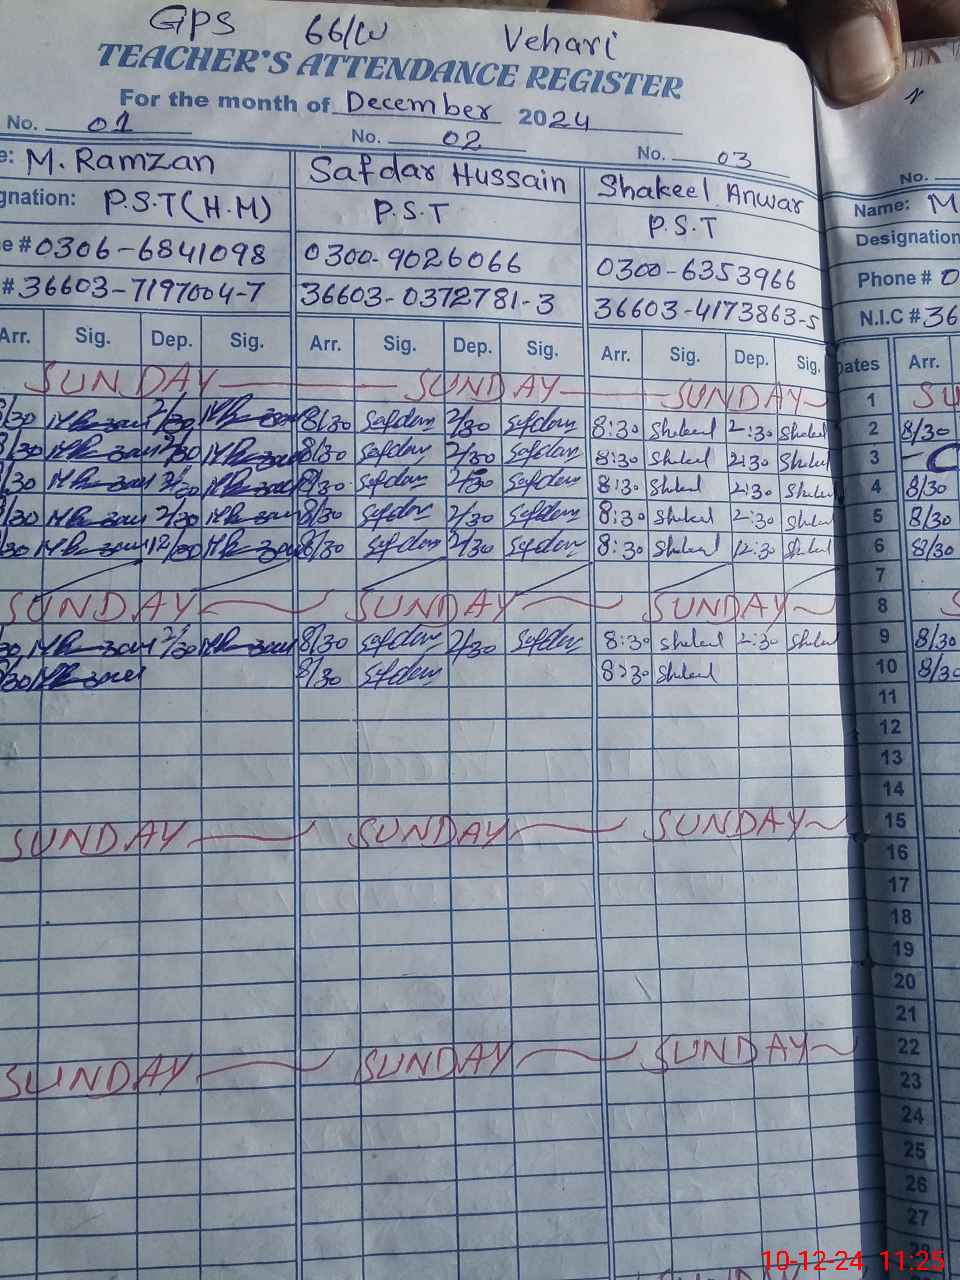 GPS 66/W Vehari
TEACHER'S ATTENDANCE REGISTER
For the month of December 2024
No. 01 No. 02 No. 03 No.
e: M. Ramzan Safdar Hussain Shakeel Anwar Name: M
gnation: P.S.T(H.M) P.S.T P.S.T Designation
e # 0306-6841098 0300-9026066 0300-6353966 Phone # 0
# 36603-7197004-7 36603-0372781-3 36603-4173863-5 N.I.C # 36
Arr. Sig. Dep. Sig. Arr. Sig. Dep. Sig. Arr. Sig. Dep. Sig. Dates Arr.
SUNDAY SUNDAY SUNDAY 1 SU
8/30 2/30 8/30 Safdar 2/30 Safdar 8:30 Shakeel 2:30 Shakeel 2 8/30
8/30 2/30 8/30 Safdar 2/30 Safdar 8:30 Shakeel 2:30 Shakeel 3 C
8/30 2/30 8/30 Safdar 2/30 Safdar 8:30 Shakeel 2:30 Shakeel 4 8/30
8/30 2/30 8/30 Safdar 2/30 Safdar 8:30 Shakeel 2:30 Shakeel 5 8/30
30 12/30 8/30 Safdar 2/30 Safdar 8:30 Shakeel 12:30 Shakeel 6 8/30
7
SUNDAY SUNDAY SUNDAY 8 S
30 2/30 8/30 Safdar 2/30 Safdar 8:30 Shakeel 2:30 Shakeel 9 8/30
30 8/30 Safdar 8:30 Shakeel 10 8/30
11
12
13
14
SUNDAY SUNDAY SUNDAY 15
16
17
18
19
20
21
SUNDAY SUNDAY SUNDAY 22
23
24
25
26
27
28
10-12-24, 11:25